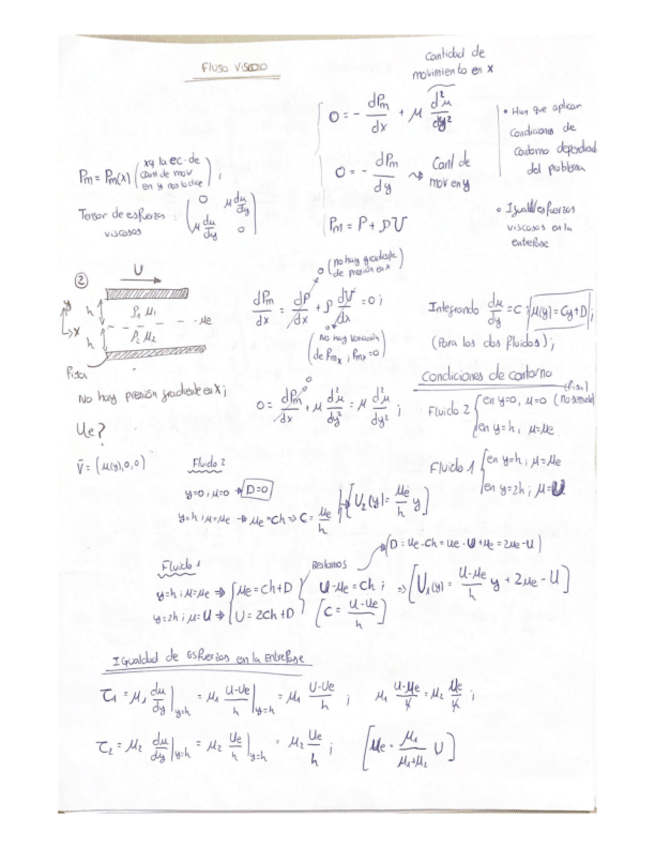 FLUJO VISCOSO
Cantidad de
movimiento en x
0 = - dPm/dx + μ d²u/dy²
• Hay que aplicar
condiciones de
contorno
del problema
Pm = Pm(x) (xq la ec. de
cant de mov
en y nos lo dice) ;
0 = - dPm/dy ⇝ Cant de
mov en y
Tensor de esfuerzos
viscosos : (0 μ du/dy
μ du/dy 0)
Pm = P + ρU
• Igualdad esfuerzos
viscosos en la
entrefase
② U
h ρ1 μ1
μe
h ρ2 μ2
y
x
0 (no hay gradiente
de presión en x)
dPm/dx = dP/dx + ρ dU/dx = 0 ;
0 (No hay variación
de Pmx, Pmy = 0)
Integrando du/dy = C ; u(y) = Cy + D ;
(Para los dos fluidos) ;
No hay presión gradiente en x ;
0
0 = dPm/dx + μ d²u/dy² = μ d²u/dy² ;
Condiciones de contorno
Fluido 2 { en y=0, u=0
en y=h, u=μe
Ue?
V̄ = (u(y),0,0)
Fluido 1 { en y=h, u=μe
en y=2h ; u=U
Fluido 2
y=0 ; u=0 → D=0
y=h ; u=μe → μe = Ch ⇒ C = μe/h → [U2(y) = μe/h y]
[D = Ue - Ch = Ue - U + Ue = 2Ue - U]
Fluido 1
Restamos
y=h ; u=μe ⇒ { μe = Ch + D
U - μe = Ch ; ⇒ [U1(y) = U-μe/h y + 2μe - U]
y=2h ; u=U ⇒ { U = 2Ch + D
[C = U-Ue/h]
IGualdad de Esfuerzos en la Entrefase
τ1 = μ1 du/dy |y=h = μ1 U-Ue/h |y=h = μ1 U-Ue/h ; μ1 U-μe/h = μ2 μe/h ;
τ2 = μ2 du/dy |y=h = μ2 Ue/h |y=h = μ2 Ue/h ; [μe = μ1/μ1+μ2 U]